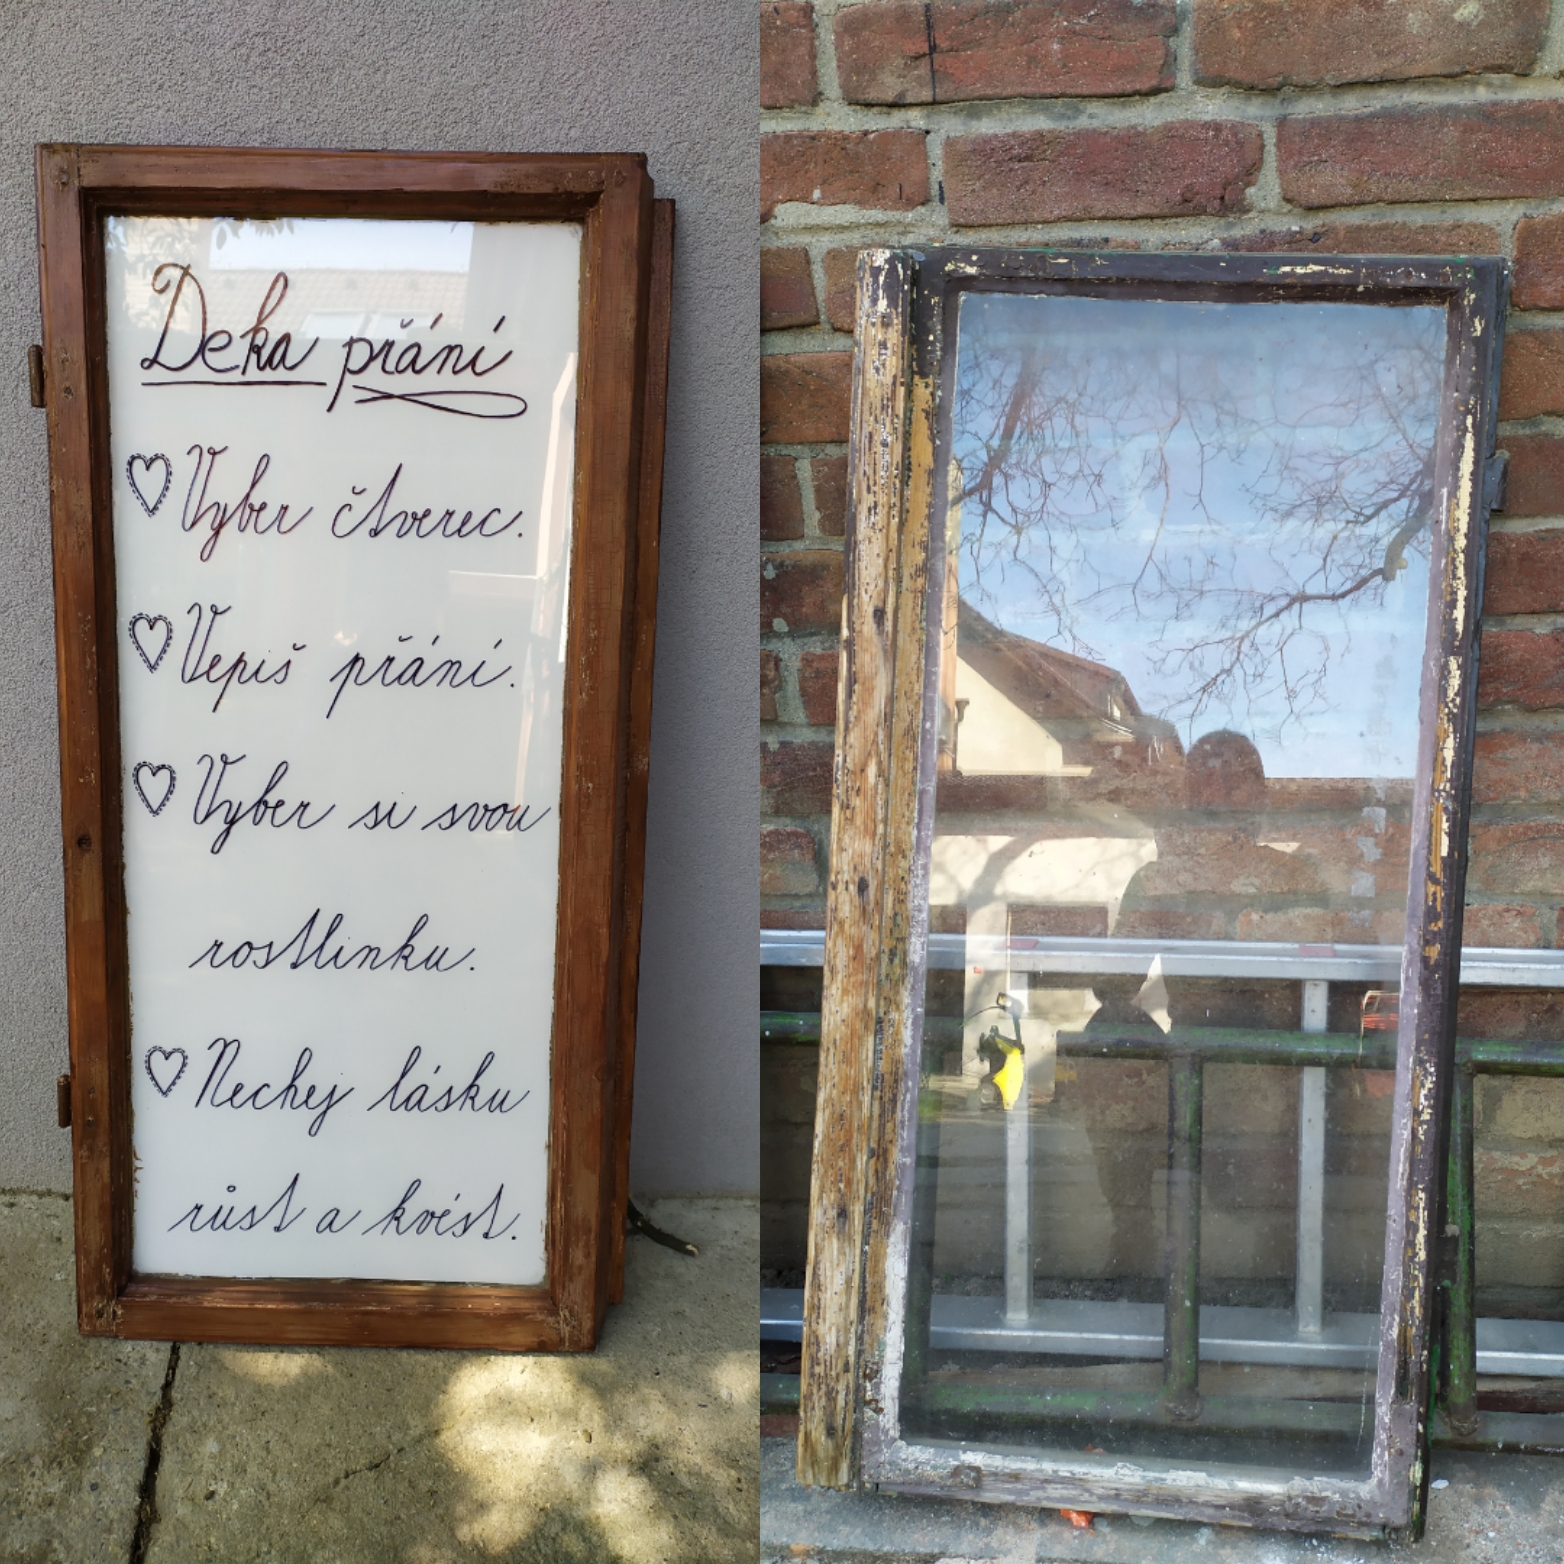 Deka přání
Vyber čtverec.
Vepiš přání.
Vyber si svou
rostlinku.
Nechej lásku
růst a kvést.